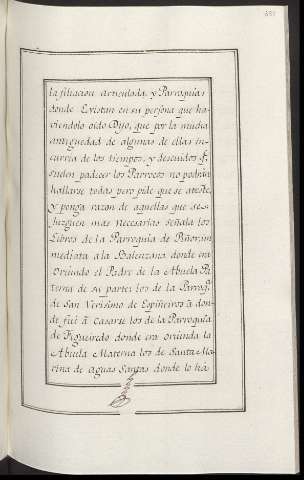 la filiacion articulada, y Parroquias
donde Existan en su persona que ha-
viendolo oido Dijo, que por la mucha
antiguedad de algunas de ellas in-
curria de los tiempos, y descuidos q.
suelen padecer los Parrocos no podran
hallarse todas pero pide que se ateste,
y ponga razon de aquellas que se
juzguen mas necesarias señala los
Libros de la Parroquia de Piñor in
mediata a la Balenzana donde era
Oriundo el Padre de la Abuela Pa
terna de su parte: los de la Parroq.ª
de San Verisimo de Espiñeiros â don-
de fui â Casarse los de la Parroquia
de Figueiredo donde era oriunda la
Abuela Materna los de Santa Ma-
rina de Aguas Santas donde lo há